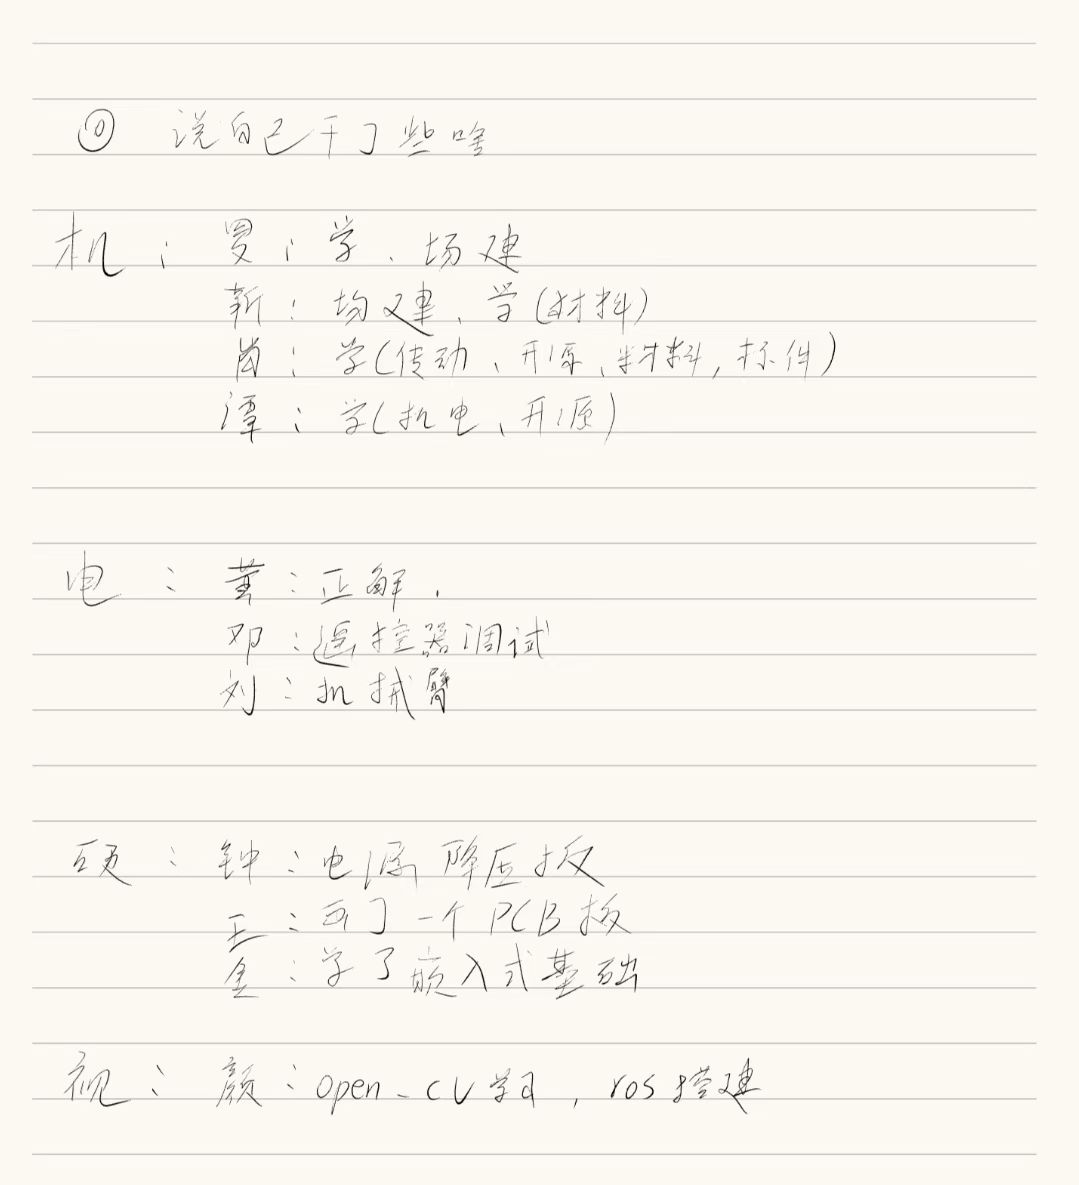 ⓪ 说自己干了些啥
机：罗：学、场建
靳：场建、学(材料)
尚：学(传动、开源、材料,标件)
谭：学(机电、开源)
电：黄：正解.
邓：遥控器调试
刘：机械臂
硬：钟：电源降压板
王：画了一个PCB板
金：学了嵌入式基础
视：颜：open-cv学习, ros搭建